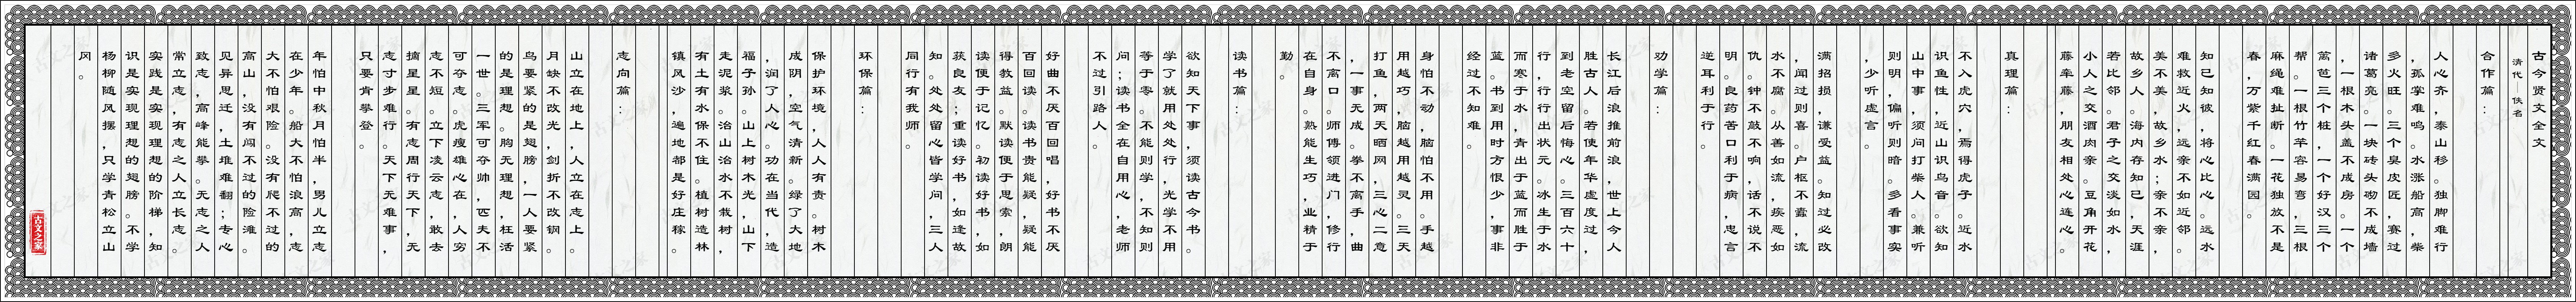 古今贤文全文
清代—佚名
合作篇：
人心齐，泰山移。独脚难行
，孤掌难鸣。水涨船高，柴
多火旺。三个臭皮匠，赛过
诸葛亮。一块砖头砌不成墙
，一根木头盖不成房。一个
篱笆三个桩，一个好汉三个
帮。一根竹竿容易弯，三根
麻绳难扯断。一花独放不是
春，万紫千红春满园。
知已知彼，将心比心。远水
难救近火，远亲不如近邻。
美不美，故乡水；亲不亲，
故乡人。海内存知己，天涯
若比邻。君子之交淡如水，
小人之交酒肉亲。豆角开花
藤牵藤，朋友相处心连心。
真理篇：
不入虎穴，焉得虎子。近水
识鱼性，近山识鸟音。欲知
山中事，须问打柴人。兼听
则明，偏听则暗。多看事实
，少听虚言。
满招损，谦受益。知过必改
，闻过则喜。户枢不蠹，流
水不腐。从善如流，疾恶如
仇。钟不敲不响，话说不
明。良药苦口利于病，忠言
逆耳利于行。
劝学篇：
长江后浪推前浪，世上今人
胜古人。若使年华虚度过，
到老空留后悔心。三百六十
行，行行出状元。冰生于水
而寒于水，青出于蓝而胜于
蓝。书到用时方恨少，事非
经过不知难。
身怕不动，脑怕不用。手越
用越巧，脑越用越灵。三天
打鱼，两天晒网，三心二意
，一事无成。拳不离手，曲
不离口。师傅领进门，修行
在自身。熟能生巧，业精于
勤。
读书篇：
欲知天下事，须读古今书。
学了就用处处行，光学不用
等于零。不能则学，不知则
问；读书全在自用心，老师
不过引路人。
好曲不厌百回唱，好书不厌
百回读。读书贵能疑，疑能
得教益。默读便于思索，朗
读便于记忆。初读好书，如
获良友；重读好书，如逢故
知。处处留心皆学问，三人
同行有我师。
环保篇：
保护环境，人人有责。树木
成阴，空气清新。绿了大地
，润了人心。功在当代，造
福子孙。山上树木光，山下
走泥浆。治山治水不栽树，
有土有水保不住。植树造林
镇风沙，遍地都是好庄稼。
志向篇：
山立在地上，人立在志上。
月缺不改光，剑折不改钢。
鸟要紧的是翅膀，一人要紧
的是理想。胸无理想，枉活
一世。三军可夺帅，匹夫不
可夺志。虎瘦雄心在，人穷
志不短。立下凌云志，敢去
摘星星。有志周行天下，无
志寸步难行。天下无难事，
只要肯攀登。
年怕中秋月怕半，男儿立志
在少年。船大不怕浪高，志
大不怕艰险。没有爬不过的
高山，没有闯不过的险滩。
见异思迁，土堆难翻；专心
致志，高峰能攀。无志之人
常立志，有志之人立长志。
实践是实现理想的阶梯，知
识是实现理想的翅膀。不学
杨柳随风摆，只学青松立山
冈。
古文之家